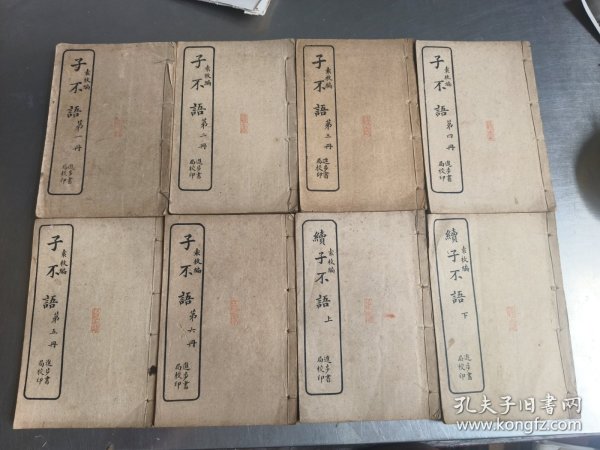 子不語
袁枚編
第一冊
進步書
局校印
子不語
袁枚編
第二冊
進步書
局校印
子不語
袁枚編
第三冊
進步書
局校印
子不語
袁枚編
第四冊
進步書
局校印
子不語
袁枚編
第五冊
進步書
局校印
子不語
袁枚編
第六冊
進步書
局校印
續子不語
袁枚編
上
進步書
局校印
續子不語
袁枚編
下
進步書
局校印
孔夫子旧书网
www.kongfz.com